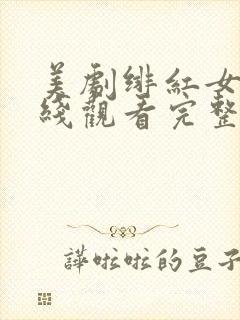 美劇緋紅女
綫觀看完整
譁啦啦的豆子